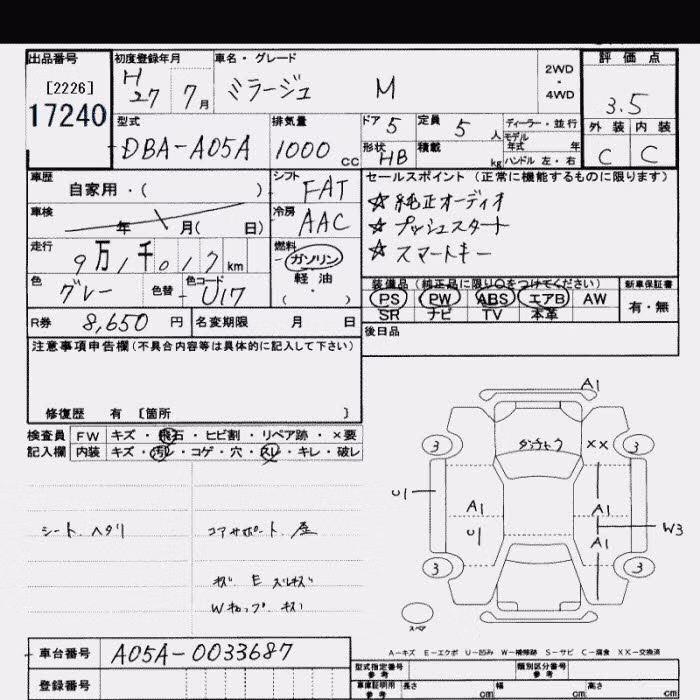 出品番号 初度登録年月 車名・グレード 評価点
[2226] H27 7月 ミラージュ M 2WD・4WD 3.5
17240
型式 排気量 ドア 5 定員 5人 ディーラー・並行 外装 内装
DBA-A05A 1000cc 形状 HB 積載 kg モデル年式 年 C C
ハンドル 左・右
車歴 自家用・( ) シフト FAT セールスポイント(正常に機能するものに限ります)
車検 年 月( 日) 冷房 AAC ☆純正オーディオ
☆プッシュスタート
走行 9万1千017km 燃料 ガソリン 軽油 ( ・ ) ☆スマートキー
色 グレー 色替 色コード U17 装備品(純正品に限り○をつけてください) 新車保証書
PS PW ABS エアB AW 有・無
SR ナビ TV 本革
R券 8,650円 名変期限 月 日 後日品
注意事項申告欄(不具合内容等は具体的に記入して下さい)
修復歴 有 [箇所 ]
検査員 FW キズ・飛石・ヒビ割・リペア跡・×要
記入欄 内装 キズ・汚レ・コゲ・穴・スレ・キレ・破レ
シート.ヘタリ
コアサポート.
Wキャップ キズ
A1
3 XX 3
U1 A1 A1
U1 W3
A1
3 3
スペア
A-キズ E-エクボ U-凹み W-補修跡 S-サビ C-腐食 XX-交換済
車台番号 A05A-0033687 型式指定番号 参考 類別区分番号 参考
登録番号 車庫証明用 参考 長さ cm 幅 cm 高さ cm